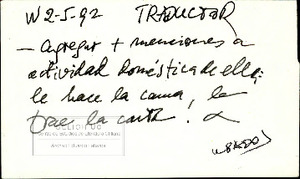 W 2-5-92 TRADUCTOR
- Agregar + menciones a
actividad doméstica de ella:
le hace la cama, le
trae la carta. α